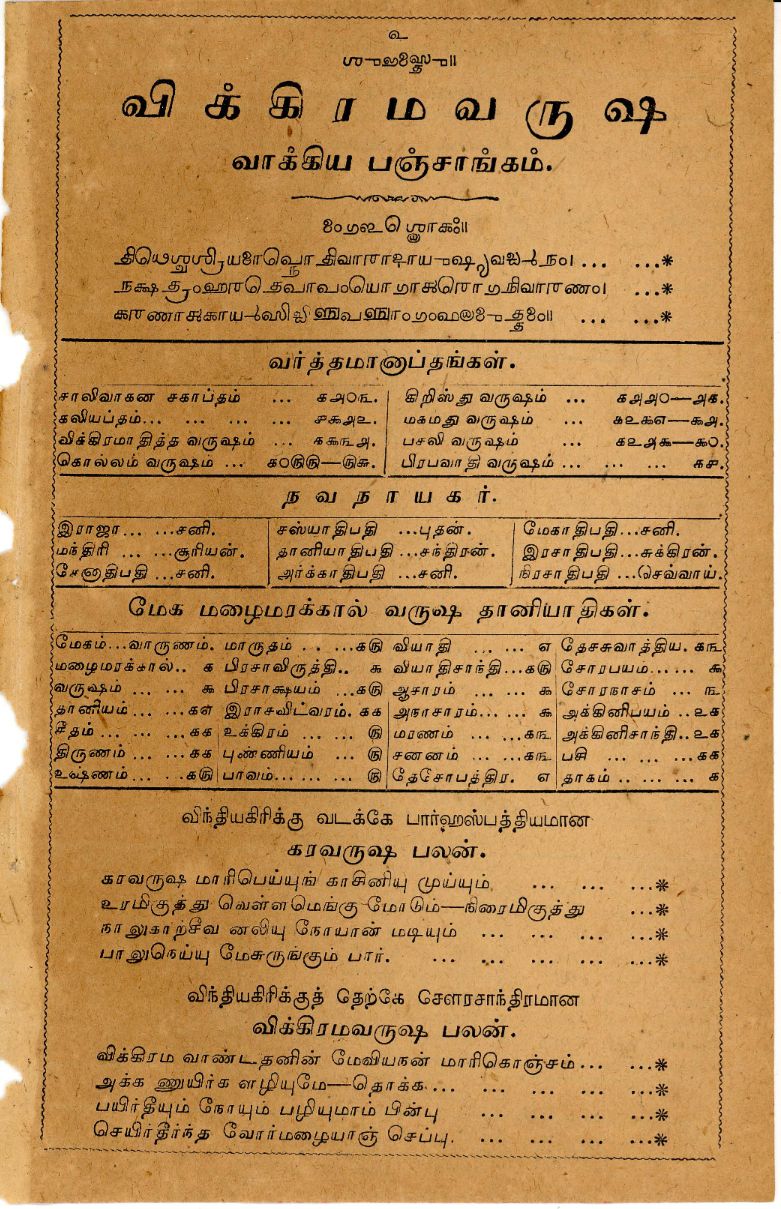 உ
விக்கிரமவருஷ
வாக்கிய பஞ்சாங்கம்.
வர்த்தமானாப்தங்கள்.
சாலிவாகன சகாப்தம் ... ௧௮௦௩. கிறிஸ்து வருஷம் ... ௧௮௮௦—௮௧.
கலியப்தம்... ... ... ... ௪௯௮௨. மகமது வருஷம் ... ௧௨௯௭—௯௮.
விக்கிரமாதித்த வருஷம் ... ௧௯௩௮. பசலி வருஷம் ... ௧௨௮௯—௯௦.
கொல்லம் வருஷம் ... ௧௦௫௫—௫௬. பிரபவாதி வருஷம் ... ... ... ௧௪.
நவநாயகர்.
இராஜா... ...சனி. சஸ்யாதிபதி ...புதன். மேகாதிபதி...சனி.
மந்திரி ... ...சூரியன். தானியாதிபதி...சந்திரன். இரசாதிபதி...சுக்கிரன்.
சேனாதிபதி ...சனி. அர்க்காதிபதி ...சனி. நிரசாதிபதி ...செவ்வாய்.
மேக மழைமரக்கால் வருஷ தானியாதிகள்.
மேகம்...வாருணம். மாருதம் . .. ...௧௫ வியாதி ... ... ௭ தேசசுவாத்திய. ௧௩
மழைமரக்கால்.. ௧ பிரசாவிருத்தி.. ௯ வியாதிசாந்தி...௧௫ சோரபயம்... ... ௯
வருஷம் ... ... ௯ பிரசாக்ஷயம் ...௧௫ ஆசாரம் ... ... ௯ சோரநாசம் ... ௩
தானியம் ... ...௧௪ இராசவிட்வரம். ௧௧ அநாசாரம்... ... ௯ அக்கினிபயம் ..௨௧
சீதம்... ... ...௧௧ உக்கிரம் ... ... ௫ மரணம் ... ...௧௩ அக்கினிசாந்தி..௨௧
திருணம் ... ...௧௧ புண்ணியம் ... ௫ சனனம் ... ...௧௩ பசி ... ... ...௧௧
உஷ்ணம் ... ...௧௫ பாவம்... ... ... ௫ தேசோபத்திர. ௭ தாகம் .. ... ... ௧
விந்தியகிரிக்கு வடக்கே பார்ஹஸ்பத்தியமான
கரவருஷ பலன்.
கரவருஷ மாரிபெய்யுங் காசினியு முய்யும் ... ... ...*
உரமிகுத்து வெள்ளமெங்கு மோடும்—நிரைமிகுத்து ...*
நாலுகாற்சீவ னலியு நோயான் மடியும் ... ... ... ...*
பாலுநெய்யு மேசுருங்கும் பார். ... ... ... ... ...*
விந்தியகிரிக்குத் தெற்கே சௌரசாந்திரமான
விக்கிரமவருஷ பலன்.
விக்கிரம வாண்டதனின் மேவியநன் மாரிகொஞ்சம்... ... ...*
அக்க ணுயிர்க ளழியுமே—தொக்க... ... ... ... ...*
பயிர்தீயும் நோயும் பழியுமாம் பின்பு ... ... ... ...*
செயிர்தீர்ந்த வோர்மழையாஞ் செப்பு. ... ... ... ...*